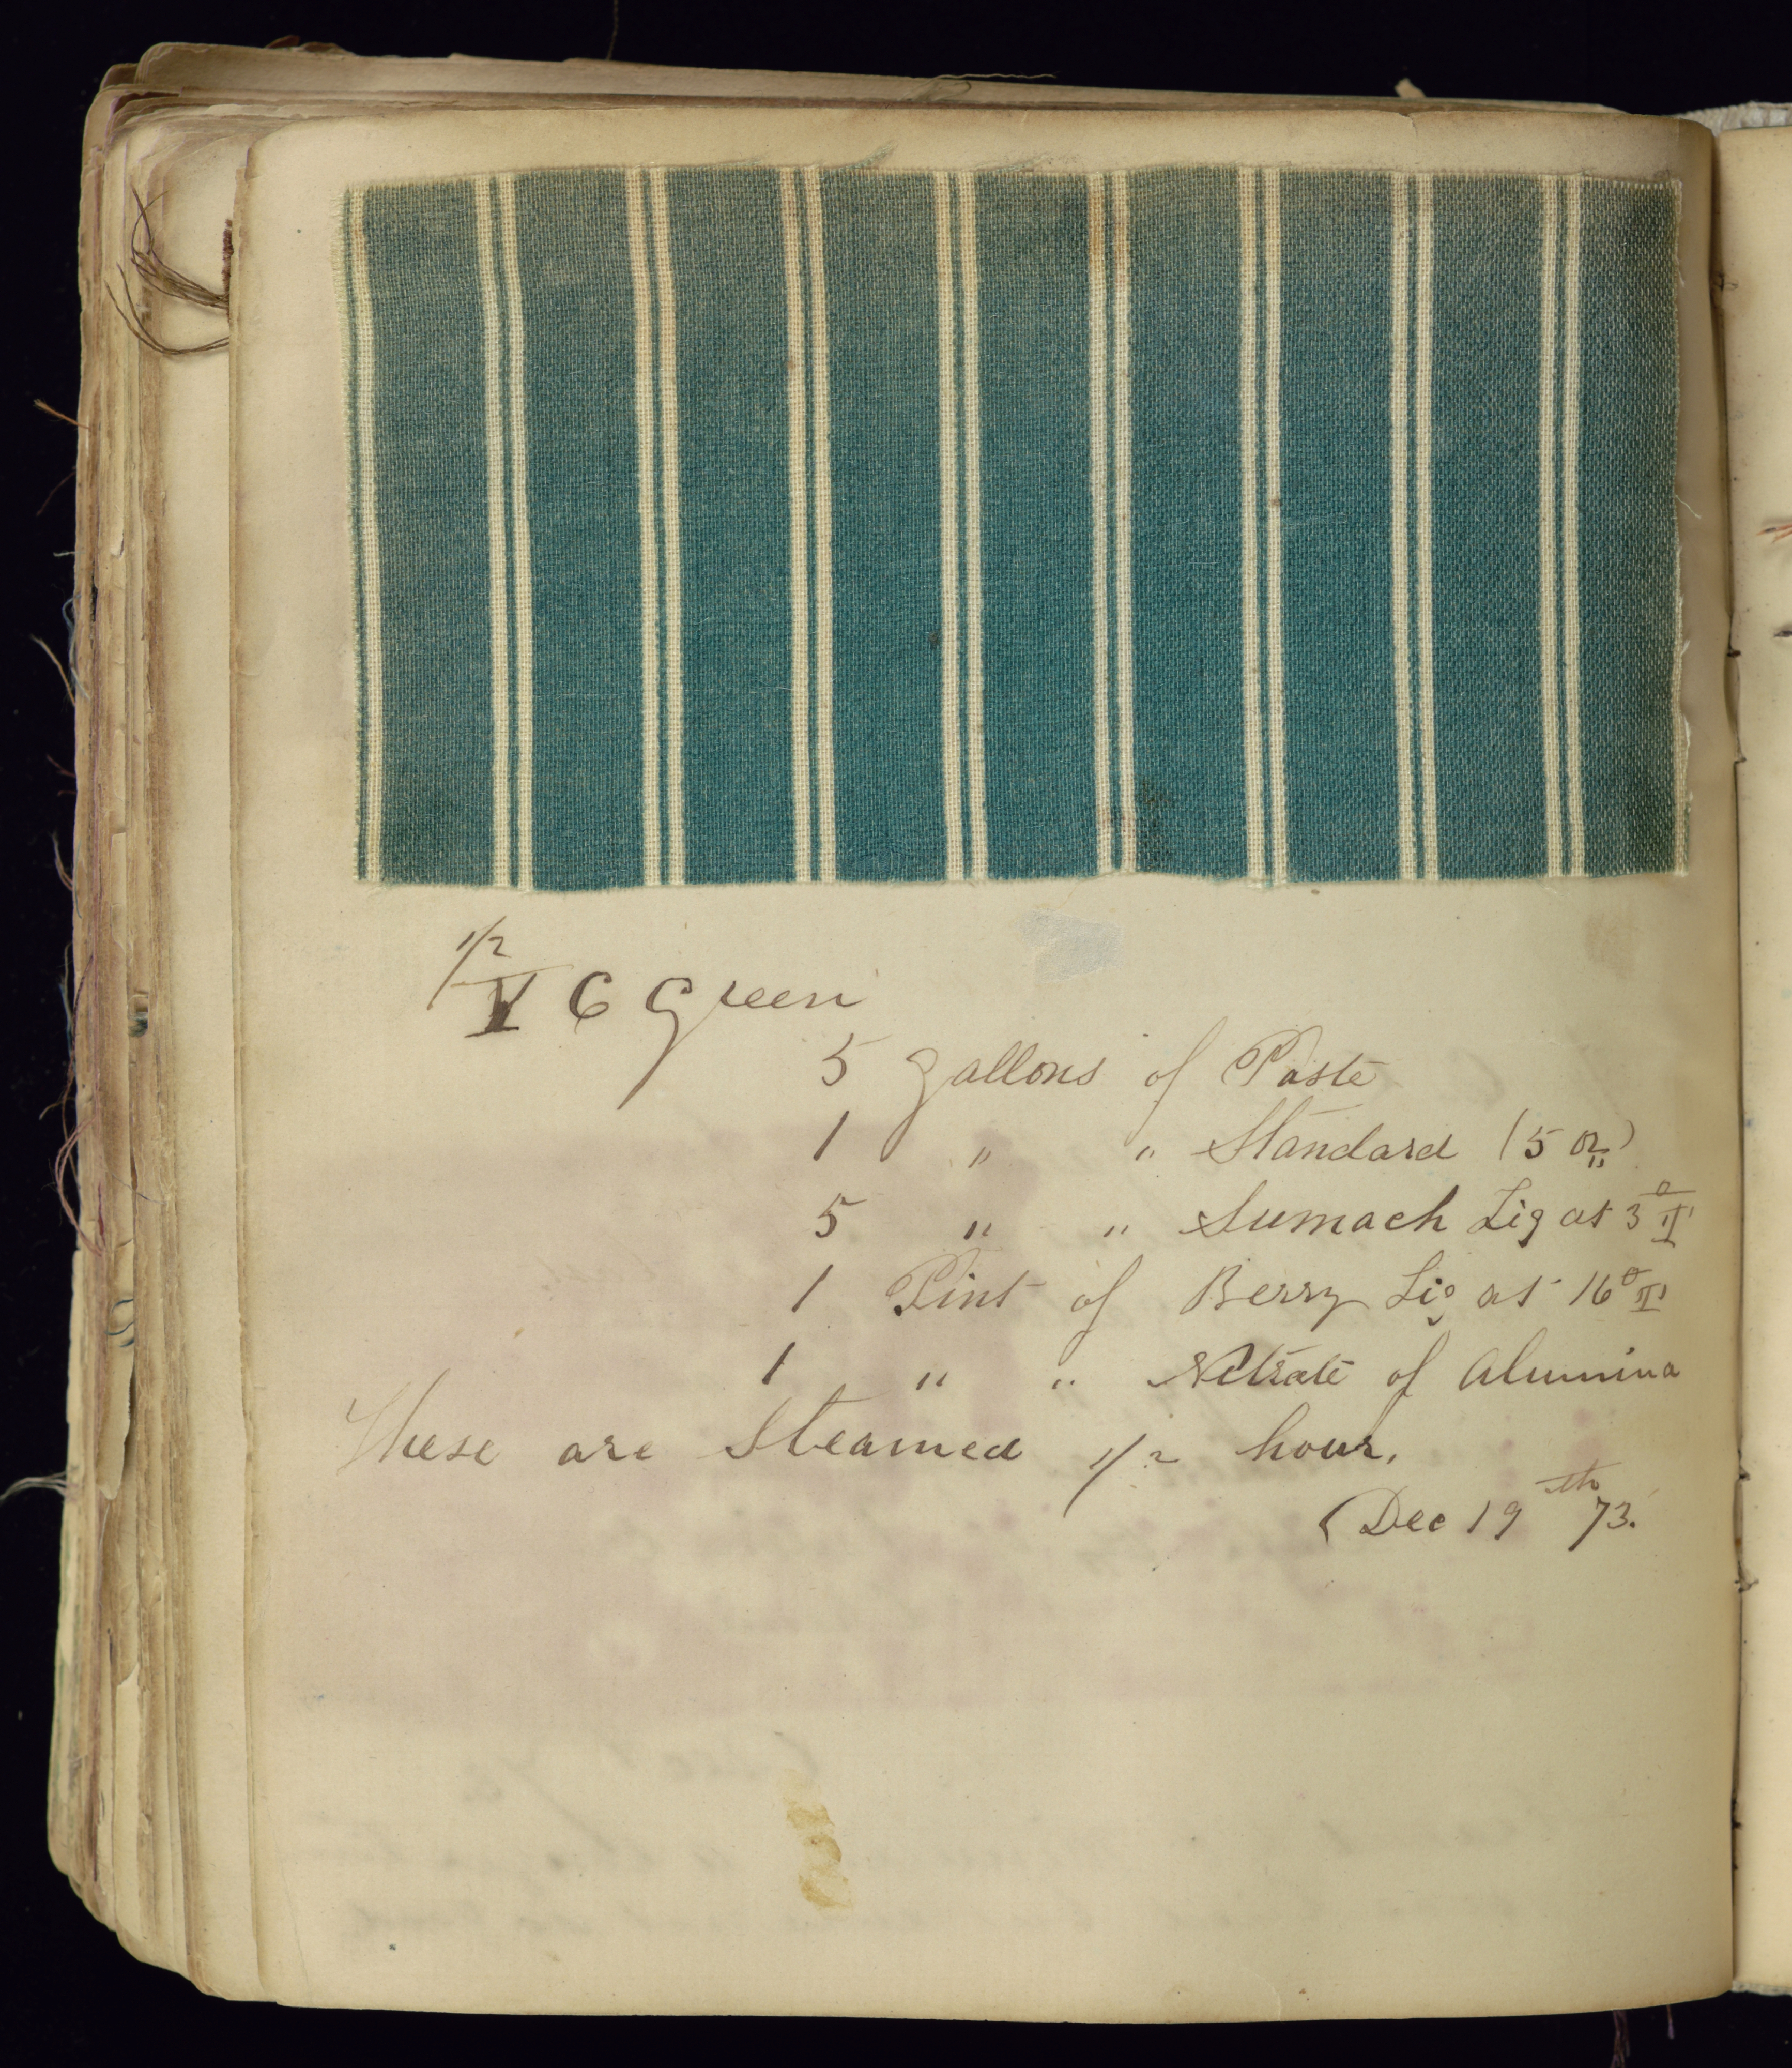 1/2 V C Green
5 gallons of Paste
1 " " Standard (5 oz)
5 " " Sumach Liq at 3° T
1 Pint of Berry Liq at 16° T
1 " " Nitrate of Alumina
These are Steamed 1/2 hour.
(Dec 19th 73.